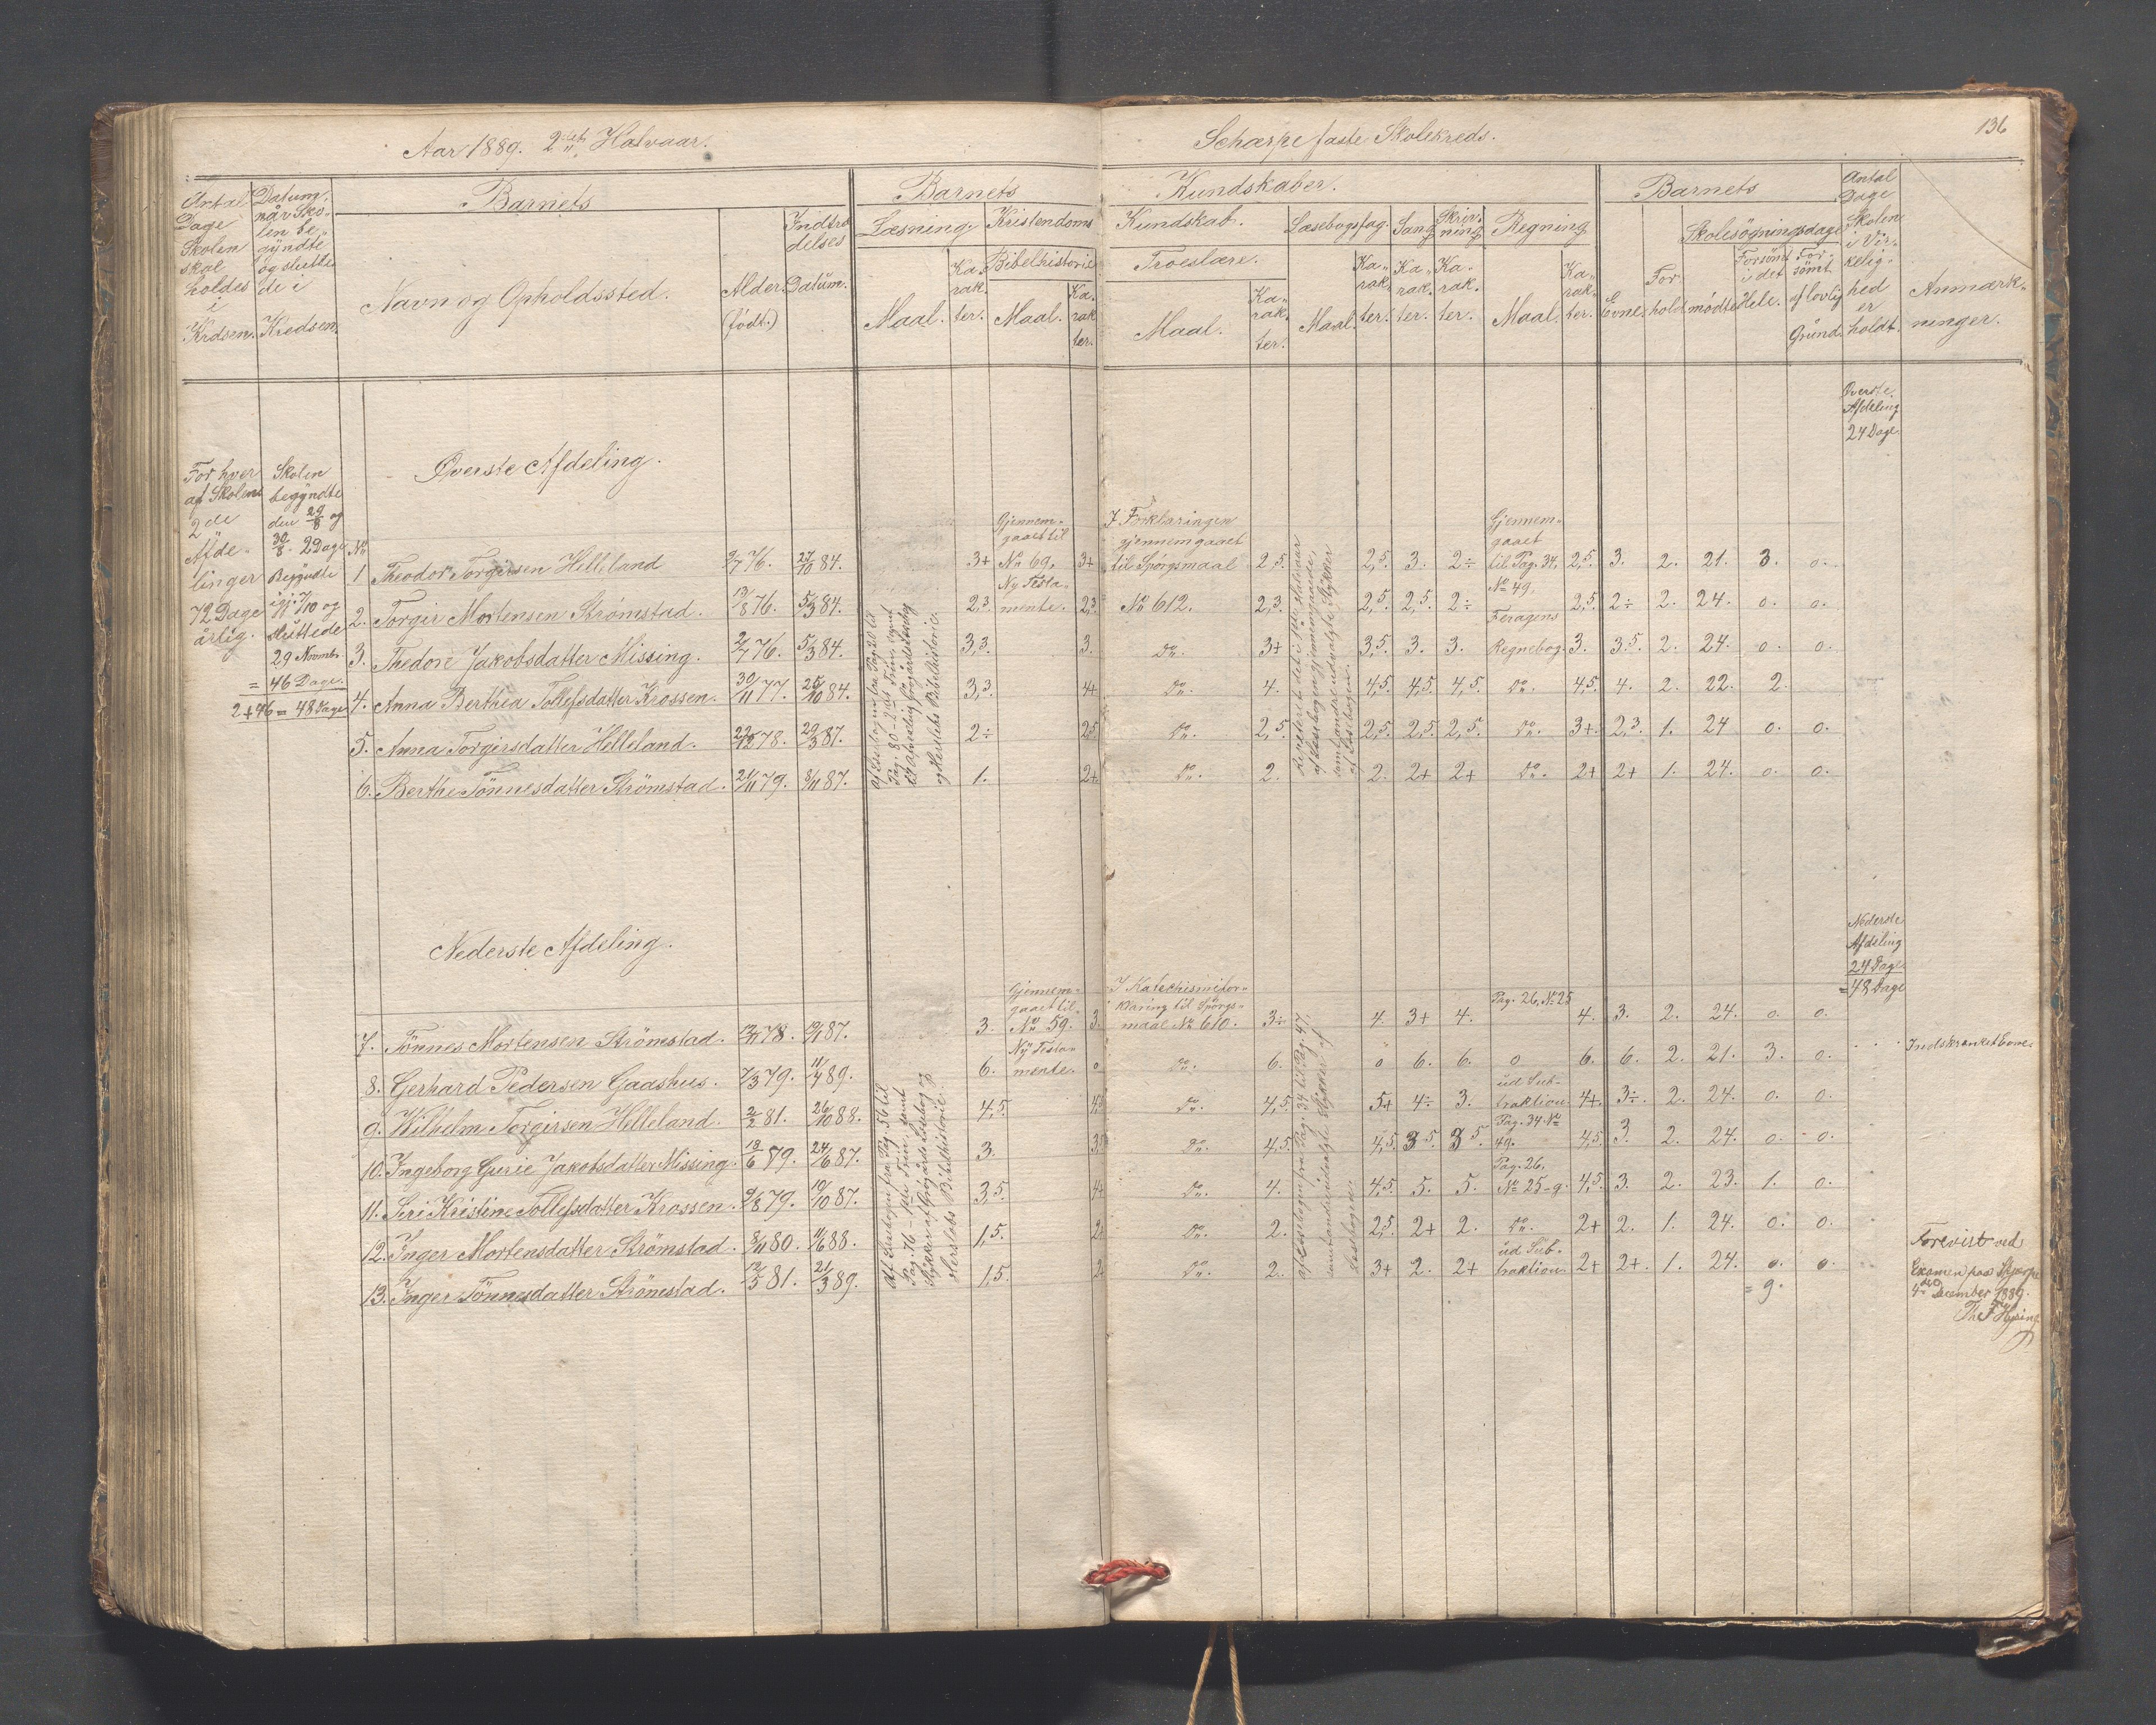 Aar 1889. 2det Halvaar.
Schærpe faste Skolekreds.
136
Antal Dage Skolen skal holdes i Krdsen.
Datum, når Skolen begyndte og sluttede i Kredsen.
Barnets
Navn og Opholdssted.
Alder. (født.)
Indtrædelses Datum.
Barnets
Kundskaber.
Læsning.
Maal.
Karakter.
Kristendoms
Kundskab.
Bibelhistorie
Maal.
Karakter.
Troeslære.
Maal.
Karakter.
Læsebogsfag.
Maal.
Karakter.
Sang
Karakter.
Skrivning
Karakter.
Regning
Maal.
Karakter.
Barnets
Evne.
Forhold
Skolesøgningsdage
mødte
Forsømt i det Hele.
Forsømt af lovlig Grund.
Antal Dage Skolen i Virkelighed er holdt.
Anmærkninger.
Øverste Afdeling 24 Dage
For hver af Skolens 2de Afdelinger 72 Dage årlig.
Skolen begyndte den 29/8 og 30/8. 2 Dage
Begyndte igj. 7/10 og sluttede 29 Novmbr.
= 46 Dage.
2+46 = 48 Dage
Øverste Afdeling.
Gjennemgaaet til No 69, Ny Testamente.
I Forklaringen gjennemgaaet til Spørgsmaal No 612.
Gjennemgaaet til Pag. 34, No 49, Feragens Regnebog.
No
1 Theodor Torgirsen Helleland 9/7 76. 27/10 84. 3+ 3+ 2,5. 2,5. 3. 2÷ 2,5. 3. 2. 21. 3. o.
2. Torgir Mortensen Strömstad. 19/8 76. 5/3 84. 2,3. 2,3. 2,3. 2,5. 2,5. 2÷ 2,5. 2÷ 2. 24. o. o.
3. Thedore Jakobsdatter Missing. 2/7 76. 5/3 84. 3,3. 3. Do. 3+ 3,5. 3. 3. 3. 3.5. 2. 24. o. o.
4. Anna Berthea Tollefsdatter Krossen. 30/11 77. 25/10 84. 3,3. 4+ Do. 4. 4,5. 4,5. 4,5. Do. 4,5. 4. 2. 22. 2.
5. Anna Torgirsdatter Helleland. 22/12 78. 29/3 87. 2÷ 2,5. Do. 2,5. 2,5. 2,5. 2,5. Do. 3+. 2,3. 1. 24 o. o.
6. Berthe Tönnesdatter Strömstad. 21/11 79. 8/11 87. 1. 2+ Do. 2. 2. 2+ 2+ Do. 2+ 2+ 1. 24. o. o.
Nederste Afdeling.
Nederste Afdeling 24 Dage
= 48 Dage
Gjennemgaaet til No 59. Ny Testamente.
I Katechismiforklaring til Spørgsmaal No 610.
7. Tönnes Mortensen Strömstad. 12/11 78. 19/1 87. 3. 3. 3÷ 4. 3+ 4. Pag. 26, No 25 4. 3. 2. 24. o. o.
8. Gerhard Pedersen Gaashus. 7/3 79. 11/4 89. 6. o Do. 6. o 6. 6. o 6. 6. 2. 21. 3. o. Indskrænket Evne
9. Wilhelm Torgirsen Helleland. 2/2 81. 26/10 88. 4,5. 4,5 Do. 4,5. 5+ 4÷ 3. ud Subtraktion 4+. 3÷. 2. 24. o. o.
10. Ingeborg Gurie Jakobsdatter Missing. 18/6 79. 24/6 87. 3. 3,5 Do. 4,5. 4,5. 3 5. 3 5. Pag. 34. No 49. 4,5. 3. 2. 24. o. o.
11. Siri Kristine Tollefsdatter Krossen. 9/8 79. 19/10 87. 3,5. 4+ Do. 4. 4,5. 5. 5. Pag. 26, No 25-g. 4,5. 3. 2. 23. 1. o.
12. Inger Mortensdatter Strömstad. 8/11 80. 11/6 88. 1,5. 2. Do. 2. 2,5. 2+ 2. Do. 2+ 2. 1. 24. o. o.
13. Inger Tönnesdatter Strömstad. 12/5 81. 21/3 89. 1,5. 2. Do. 2. 3+ 2. 2+ ud Subtraktion. 2+ 2+. 1. 24. o. o.
= 9.
Forevist ved
Examen paa Skjerpe
4de December 1889.
Th. F. Hysing